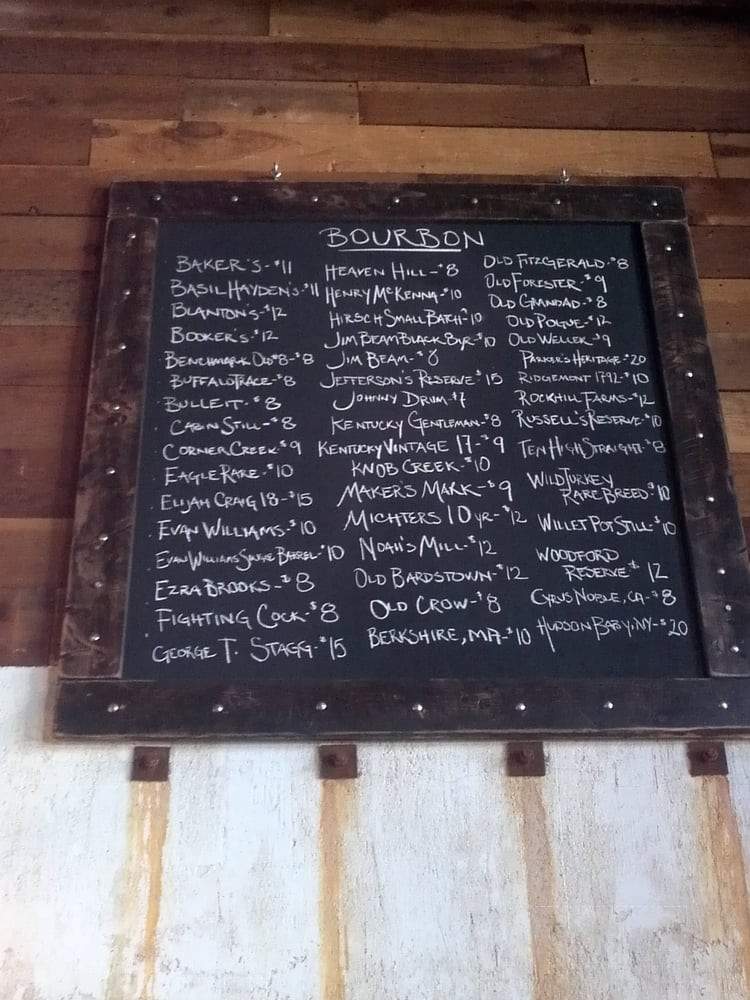 BOURBON
BAKER'S-$11
BASIL HAYDEN'S-$11
BLANTON'S-$12
BOOKER'S-$12
BENCHMARK OLD #8-$8
BUFFALO TRACE-$8
BULLEIT-$8
CABIN STILL-$8
CORNER CREEK-$9
EAGLE RARE-$10
ELIJAH CRAIG 18-$15
EVAN WILLIAMS-$10
EVAN WILLIAMS SINGLE BARREL-$10
EZRA BROOKS-$8
FIGHTING COCK-$8
GEORGE T. STAGG-$15
HEAVEN HILL-$8
HENRY MCKENNA-$10
HIRSCH SMALL BATCH-$10
JIM BEAM BLACK 8YR-$10
JIM BEAM-$8
JEFFERSON'S RESERVE-$15
JOHNNY DRUM-$7
KENTUCKY GENTLEMAN-$8
KENTUCKY VINTAGE 17-$9
KNOB CREEK-$10
MAKER'S MARK-$9
MICHTERS 10 YR-$12
NOAH'S MILL-$12
OLD BARDSTOWN-$12
OLD CROW-$8
BERKSHIRE, MA-$10
OLD FITZGERALD-$8
OLD FORESTER-$9
OLD GRANDAD-$8
OLD POGUE-$12
OLD WELLER-$9
PARKER'S HERITAGE-$20
RIDGEMONT 1792-$10
ROCKHILL FARMS-$12
RUSSELL'S RESERVE-$10
TEN HIGH STRAIGHT-$8
WILD TURKEY
RARE BREED-$10
WILLET POT STILL-$10
WOODFORD
RESERVE-$12
CYRUS NOBLE, CA-$8
HUDSON BABY, NY-$20